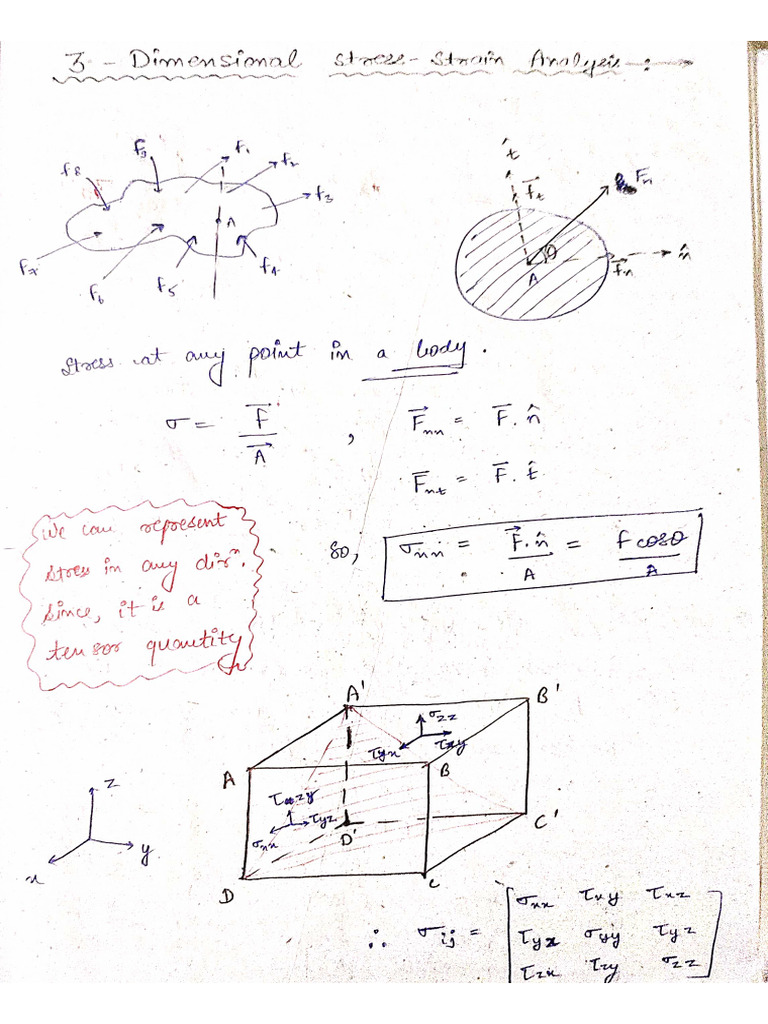 3 - Dimensional stress - strain Analysis : →
f8 f9 f1 f2 f3
A
f7 f6 f5 f4
t̂
f⃗t Fn
θ n̂
A f⃗n
stress at any point in a body .
σ = F⃗ / A⃗ , F⃗nn = F⃗ . n̂
F⃗nt = F⃗ . t̂
so, σnn = F⃗.n̂ / A = f cosθ / A
We can represent
stress in any dirⁿ.
Since, it is a
tensor quantity
A' B'
σzz
τyx τxy
A B
z
τzy
τyz
σxx D' C'
y
x
D C
∴ σij = [ σxx τxy τxz
τyx σyy τyz
τzx τzy σzz ]